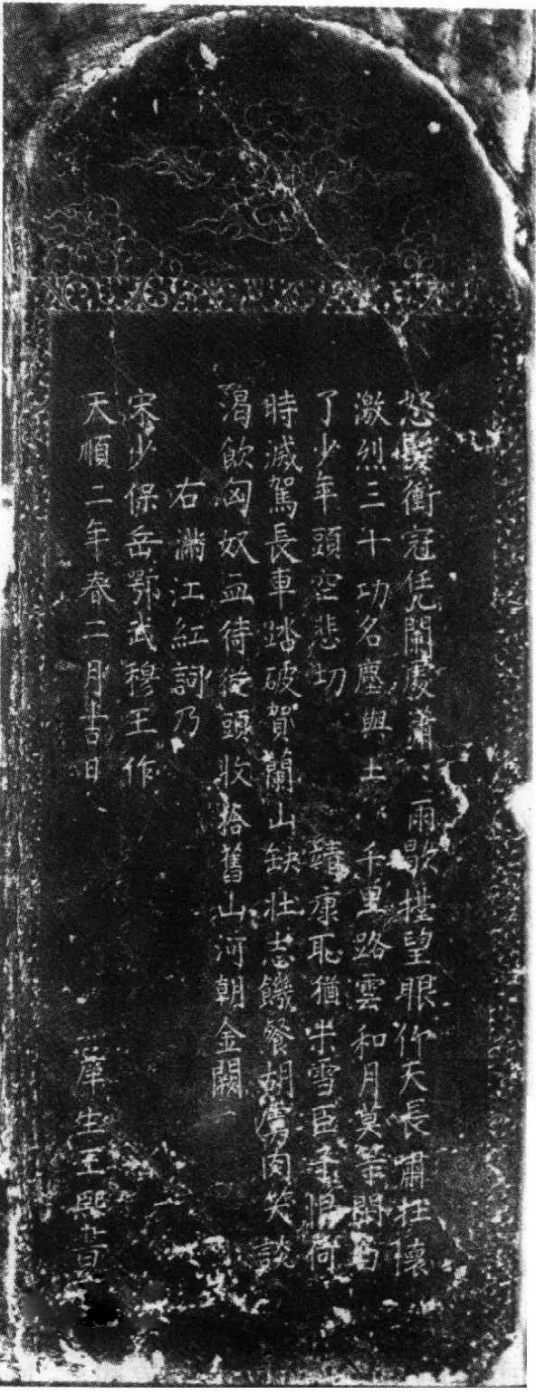 怒髮衝冠凭闌處瀟〻雨歇擡望眼仰天長嘯壯懷
激烈三十功名塵與土八千里路雲和月莫等閑白
了少年頭空悲切　靖康耻猶未雪臣子恨何
時滅駕長車踏破賀蘭山缺壯志饑餐胡虜肉笑談
渴飲匈奴血待從頭收拾舊山河朝金闕
右滿江紅詞乃
宋少保岳鄂武穆王作
天順二年春二月吉日　庠生王熙書